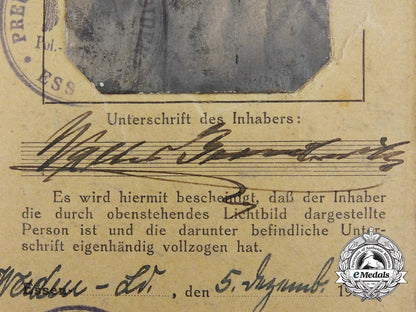 PRE
Pol.-
ESS
Unterschrift des Inhabers:
Walter
Es wird hiermit bescheinigt, daß der Inhaber
die durch obenstehendes Lichtbild dargestellte
Person ist und die darunter befindliche Unter-
schrift eigenhändig vollzogen hat.
Essen, den 5. Dezemb. 19
eMedals